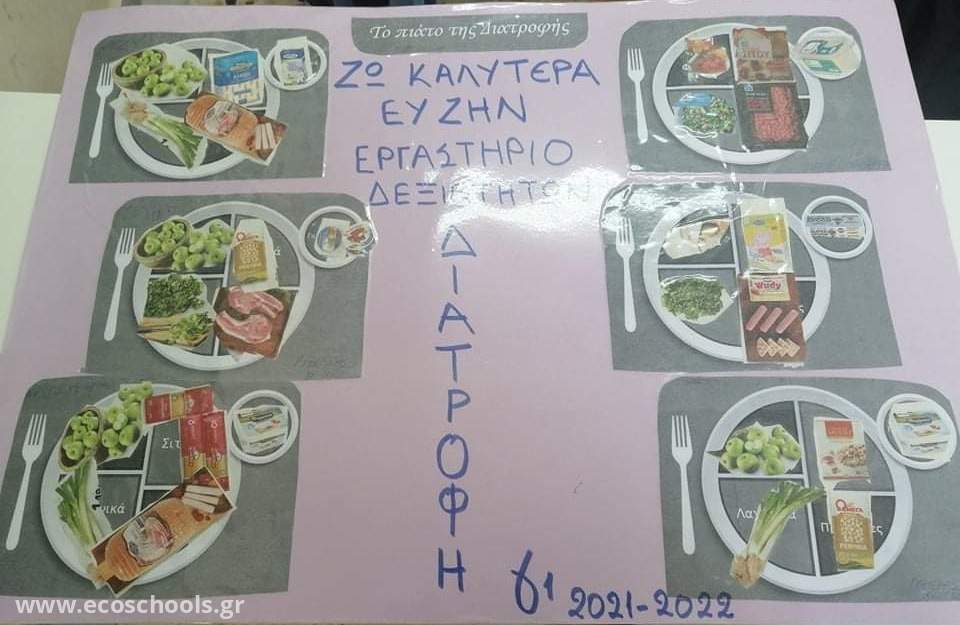 Το πιάτο της Διατροφής
ΖΩ ΚΑΛΥΤΕΡΑ
ΕΥ ΖΗΝ
ΕΡΓΑΣΤΗΡΙΟ
ΔΕΞΙΟΤΗΤΩΝ
ΔΙΑΤΡΟΦΗ
Wudy
Σιτ
νικά
Λαχ
ΩΜΕΓΑ
ΡΕΒΙΘΙΑ
γ1 2021-2022
www.ecoschools.gr